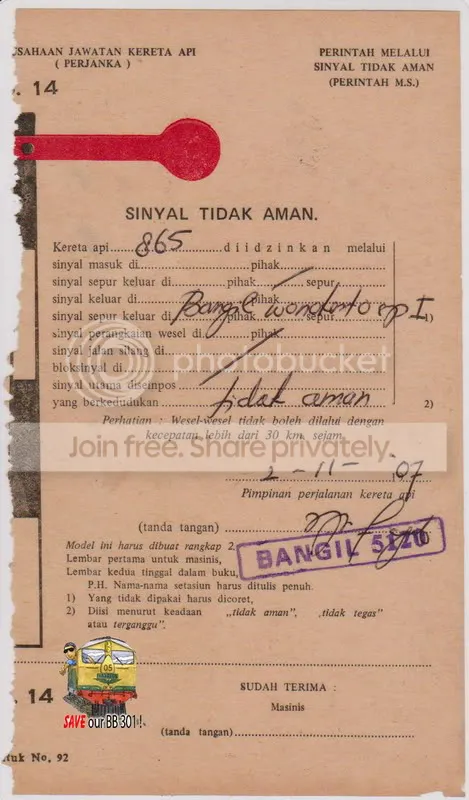 USAHAAN JAWATAN KERETA API
( PERJANKA )
PERINTAH MELALUI
SINYAL TIDAK AMAN
(PERINTAH M.S.)
. 14
SINYAL TIDAK AMAN.
Kereta api 865 diidzinkan melalui
sinyal masuk di pihak
sinyal sepur keluar di pihak sepur
sinyal keluar di pihak
sinyal sepur keluar di Bangil pihak sepur I 1)
sinyal perangkaian wesel di pihak
sinyal jalan silang di
bloksinyal di
sinyal utama disempos
yang berkedudukan tidak aman 2)
Perhatian : Wesel-wesel tidak boleh dilalui dengan
kecepatan lebih dari 30 km. sejam.
photobucket
Join free. Share privately.
2 - 11 - 07
Pimpinan perjalanan kereta api
(tanda tangan)
BANGIL 5120
Model ini harus dibuat rangkap 2.
Lembar pertama untuk masinis,
Lembar kedua tinggal dalam buku,
P.H. Nama-nama setasiun harus ditulis penuh.
1) Yang tidak dipakai harus dicoret,
2) Diisi menurut keadaan „tidak aman”, „tidak tegas”
atau terganggu”.
05
SAVE our BB 301 !
. 14
SUDAH TERIMA :
Masinis
(tanda tangan)
tuk No. 92